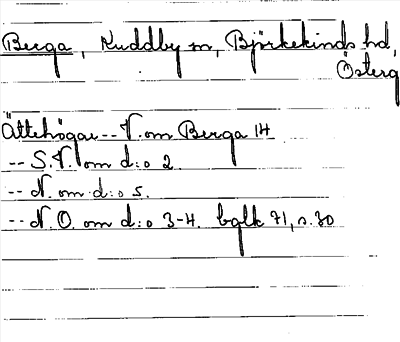 Berga, Kuddby sn, Björkekinds hd,
Österg
Ättehögar -- V. om Berga 14
-- S.V. om d:o 2
-- N. om d:o 5.
-- N.O. om d:o 3-4. bglk 71, s. 30